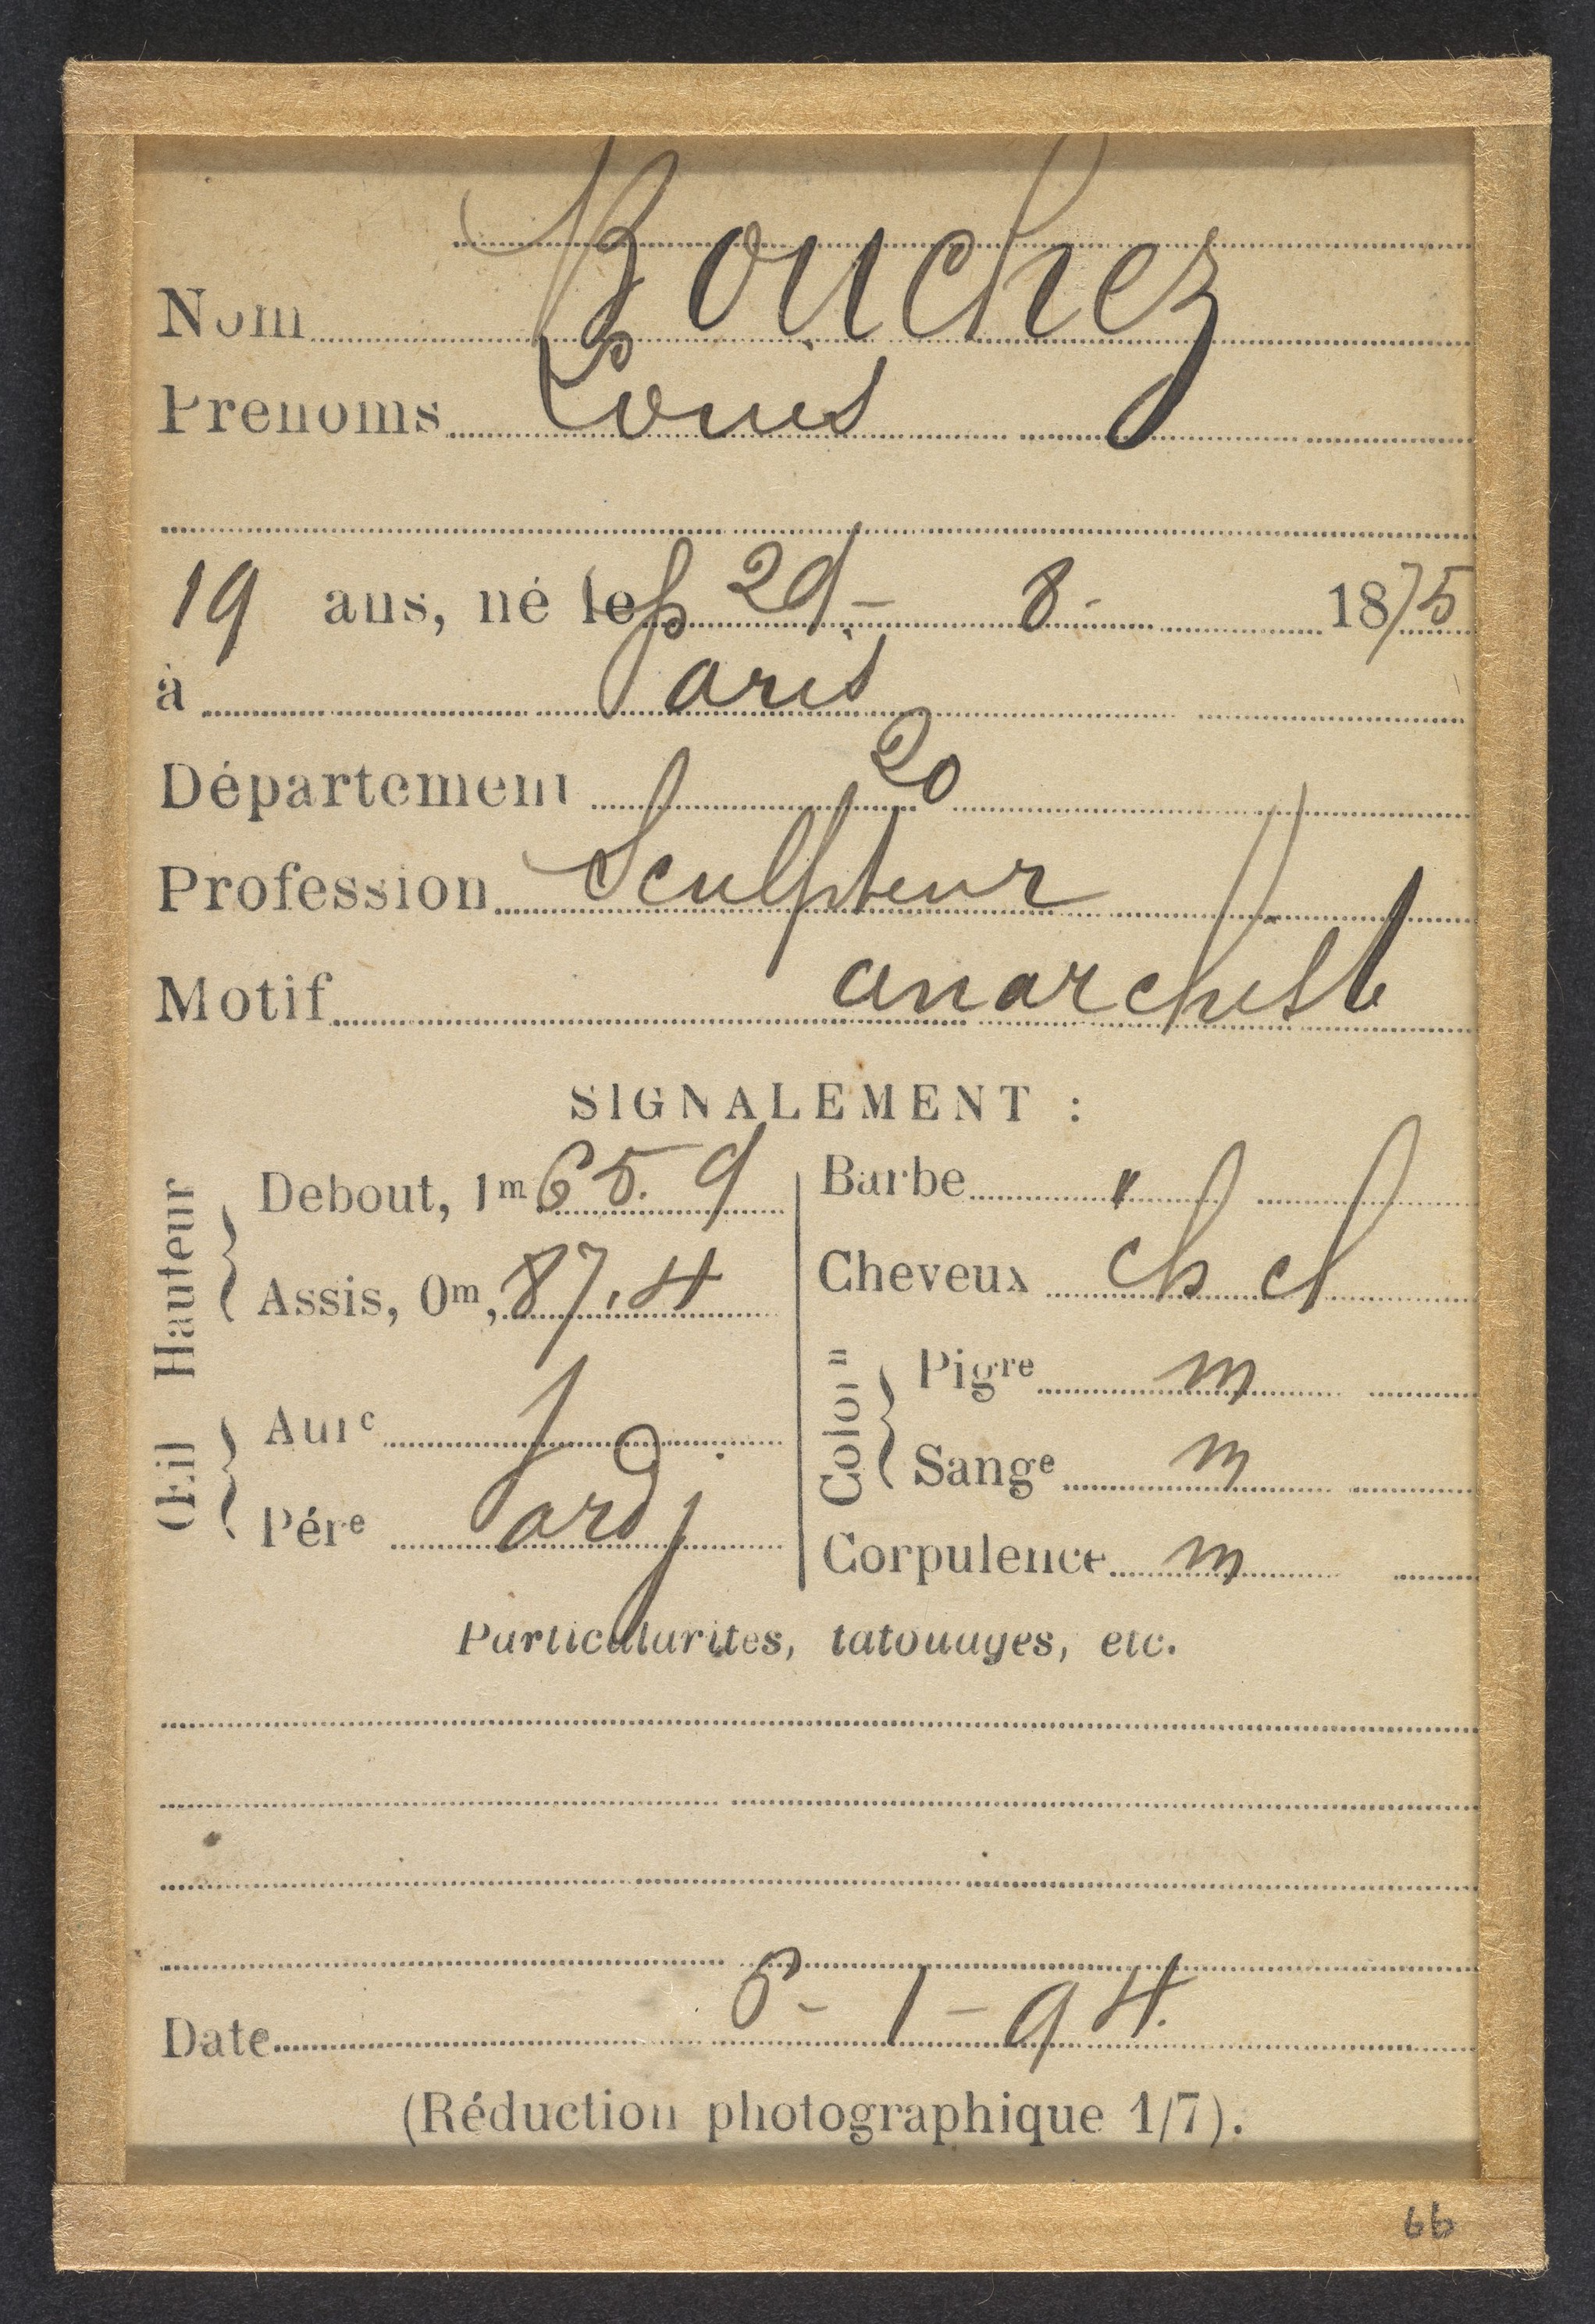 Nom Bouchez
Prénoms Louis
19 ans, né le 29 - 8 - 1875
à Paris
Département 20
Profession Sculpteur
Motif anarchiste
SIGNALEMENT :
Hauteur
Debout, 1m 65.9
Assis, 0m, 87,4
Œil
Aure
Pére
Barbe "
Cheveux ch cl
Colon
Pigre m
Sange m
Corpulence m
Particularités, tatouages, etc.
Date 6 - 1 - 94.
(Réduction photographique 1/7).
66